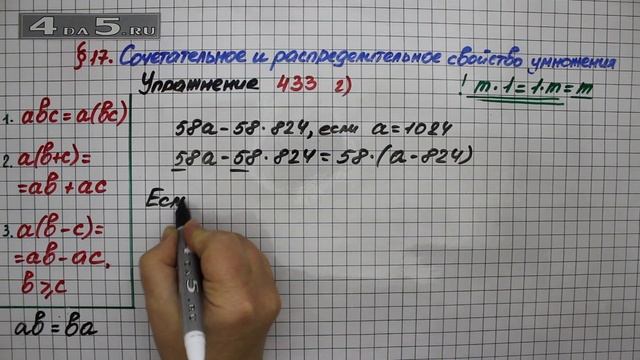 4DA5.RU
§17. Сочетательное и распределительное свойство умножения
Упражнение 433 г)
! m·1=1·m=m
1. abc=a(bc)
2. a(b+c)=
=ab+ac
3. a(b-c)=
=ab-ac,
b⩾c
ab=ba
58a-58·824, если a=1024
58a-58·824=58·(a-824)
Есл
4DA5.RU